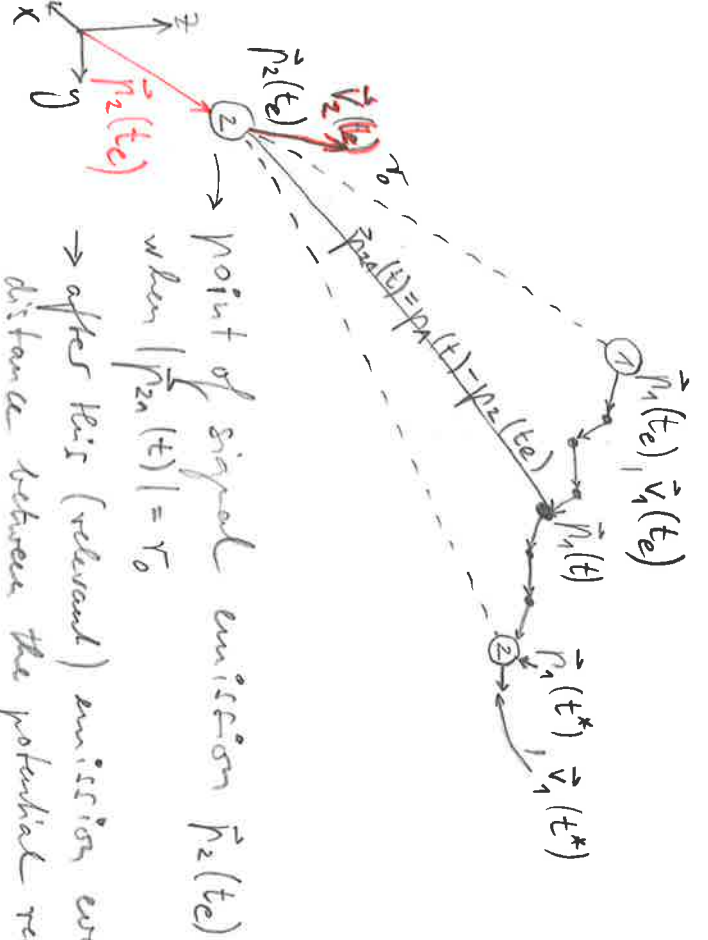 $\vec{r}_1(t_e), \vec{v}_1(t_e)$
1
$\vec{r}_1(t)$
$\vec{r}_1(t^*), \vec{v}_1(t^*)$
2
$r_0$
$\vec{r}_{21}(t) = \vec{r}_1(t) - \vec{r}_2(t_e)$
$\vec{v}_2(t_e)$
$\vec{r}_2(t_e)$
2
z
$\vec{r}_2(t_e)$
x
y
→ point of signal emission $\vec{r}_2(t_e)$
when $|\vec{r}_{21}(t)| = r_0$
→ after this (relevant) emission
distance between the potential